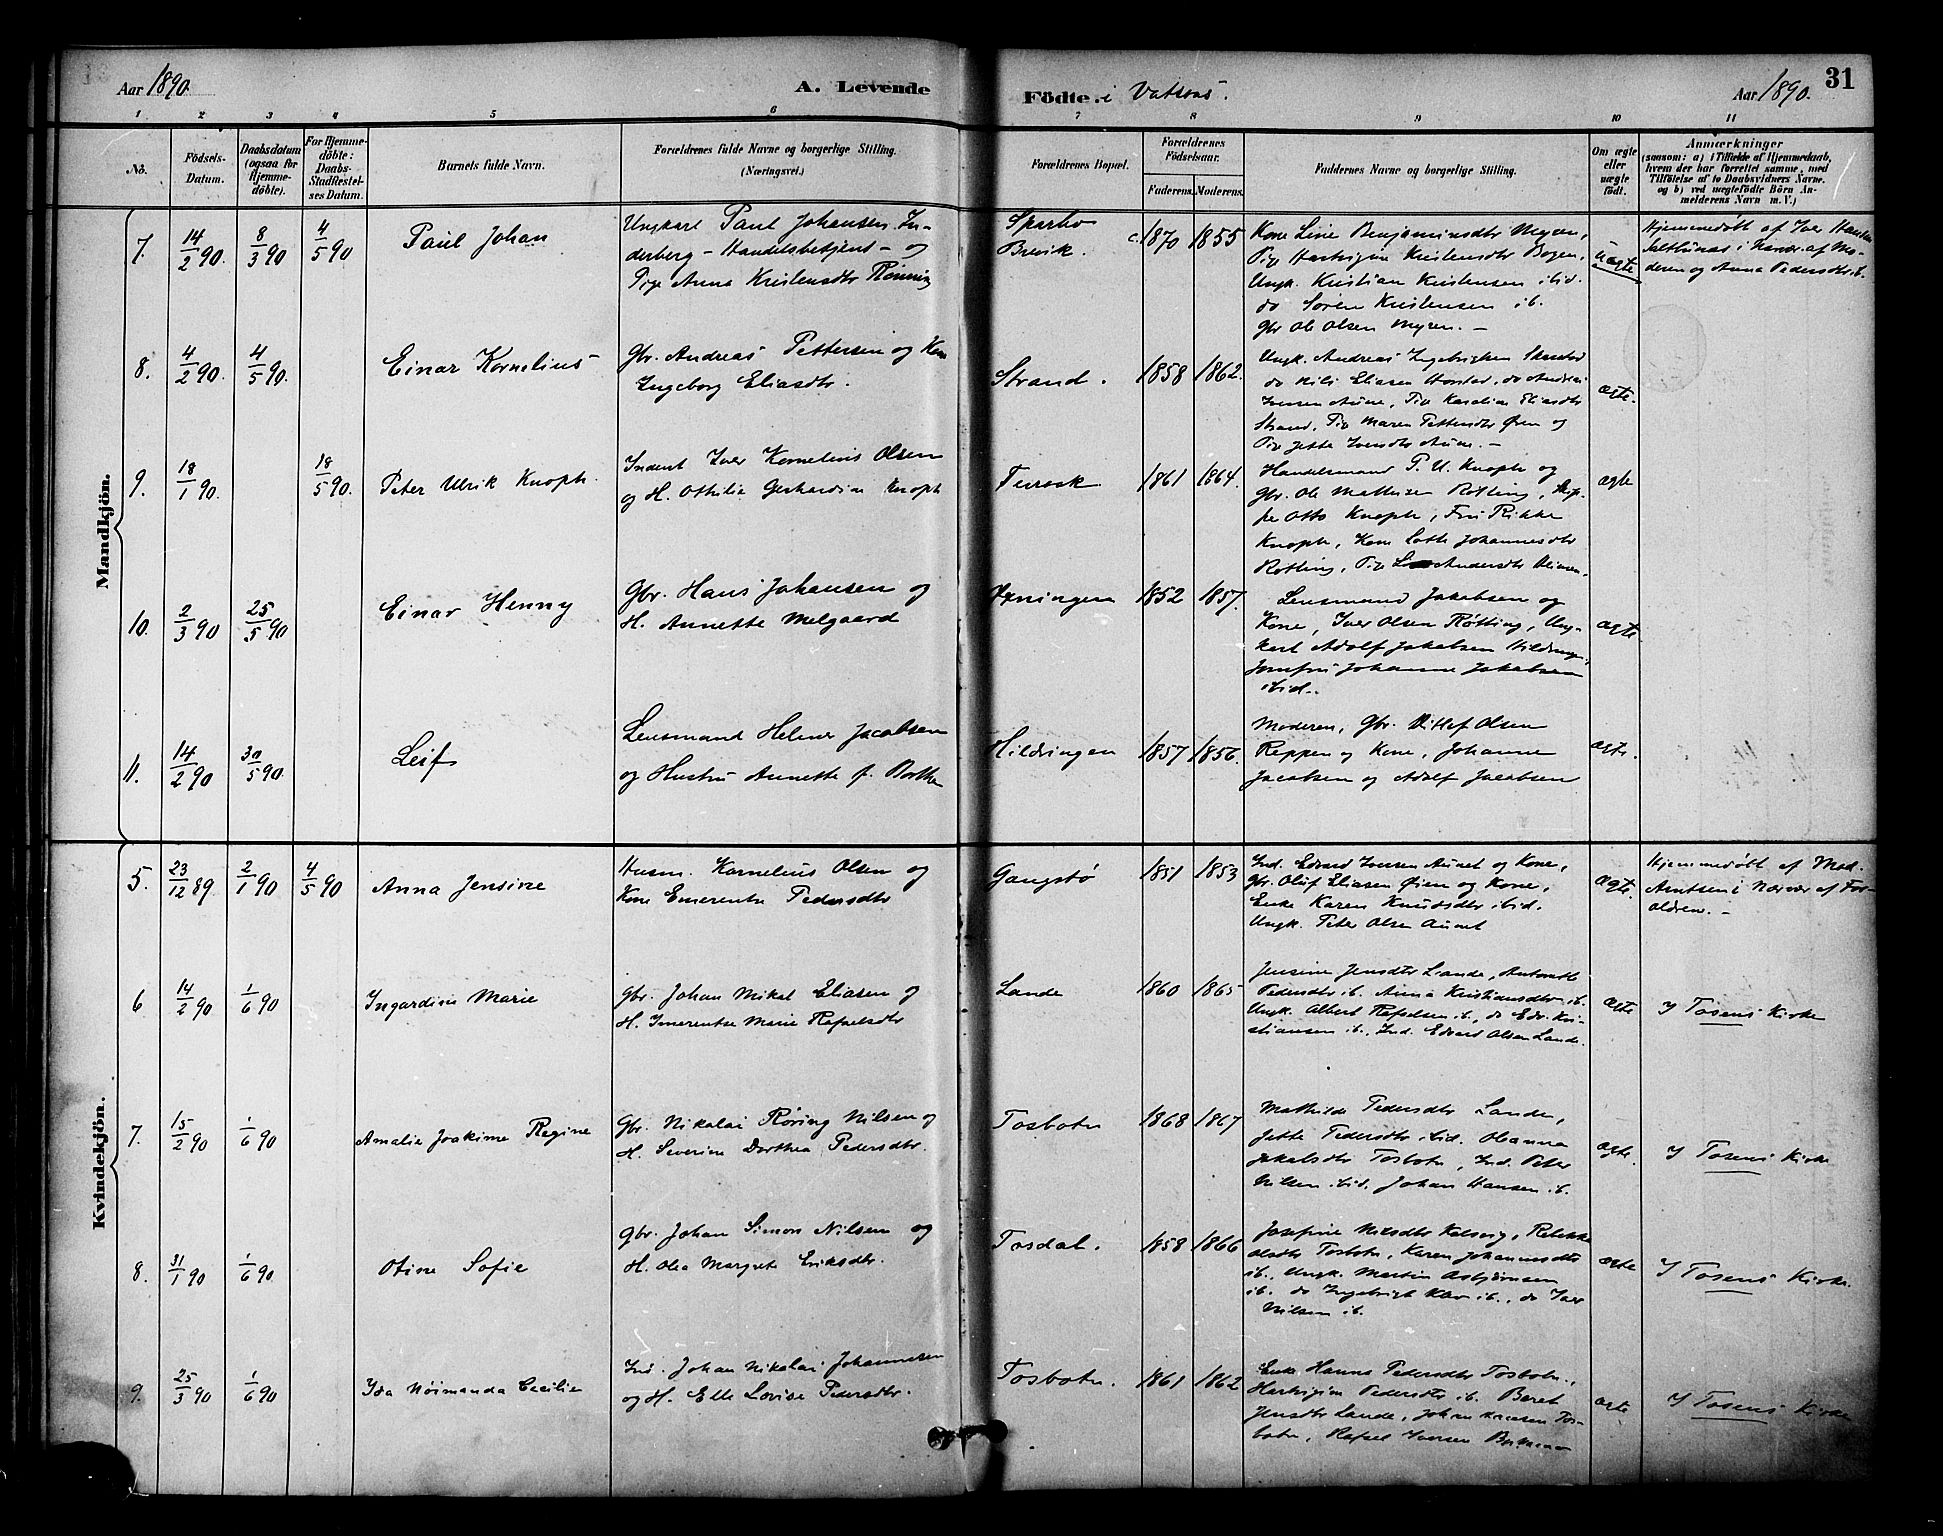 Aar 1890.
A. Levende
Födte. i Vatsaas.
Aar 1890.
31
1
2
3
4
5
6
7
8
9
10
11
No.
Födsels-
Datum.
Daabsdatum
(ogsaa for
Hjemme-
döbte).
For Hjemme-
döbte:
Daabs-
Stadfæstel-
ses Datum.
Barnets fulde Navn.
Forældrenes fulde Navne og borgerlige Stilling.
(Næringsvei.)
Forældrenes Bopæl.
Forældrenes
Födselsaar.
Faderens.
Moderens.
Faddernes Navne og borgerlige Stilling.
Om ægte
eller
uægte
født.
Anmærkninger
(saasom: a) i Tilfælde af Hjemmedaab,
hvem der har forrettet samme, med
Tilføielse af to Daabsvidners Navne.
og b) ved uægtefödte Börn An-
melderens Navn m. V.)
Mandkjön.
7. 14/2 90. 8/3 90 4/5 90
Paul Johan
Ungkarl Paul Johansen In-
derberg - Handelsbetjent - og
Pige Anna Kristensdtr Rönning
Sparbo
Brevik.
c. 1870 1855
Kone Line Benjaminsdtr Myren,
Pige Hartvigine Kristensdtr Bogen,
Ungk. Kristian Kristensen ibid.
do Sören Kristensen ib.
Gbr Ole Olsen Myren. -
uægte
Hjemmedöbt af Iver Hansen
i Nærvær af Mo-
deren og Anna Pedersdtr ib.
8. 4/2 90. 4/5 90.
Einar Kornelius
Gbr. Andreas Pettersen og Kone
Ingeborg Eliasdtr.
Strand.
1858 1862.
Ungk. Andreas Ingebrigtsen
do Nils Eliasen Horstad, do Andreas
Iversen Aune, Pige Karoline Eliasdtr
Strand, Pige Maren Pettersdtr Øren og
Pige Jette Iversdtr Aune. -
ægte.
9. 18/1 90. 18/5 90.
Peter Ulrik Knoph.
Inderst Iver Kornelius Olsen
og H. Othilie Gerhardine Knoph
Terraak
1861 1864.
Handelsmand P. U. Knoph og
Gbr. Ole Mathisen Røtting, Skip-
per Otto Knoph, Fru Rikke
Knoph, Kone Lotte Johannesdtr
Røtting, Pige Andersdtr
ægte
10. 2/3 90 25/5 90
Einar Henny
Gbr. Hans Johansen og
H. Annette Melgaard
Øxningen
1852 1857.
Lensmand Jakobsen og
Kone, Iver Olsen Røtting, Ung-
karl Adolf Jakobsen Hildringen,
Jomfru Johanne Jakobsen
ibid.
ægte.
11. 14/2 90 30/5 90.
Leif
Lensmand Helmer Jacobsen
og Hustru Annette f. Bothe
Hildringen
1857 1856.
Moderen, Gbr. Ditlef Olsen
Reppen og Kone, Johanne
Jacobsen og Adolf Jacobsen
ægte.
Kvindekjön.
5. 23/12 89 2/1 90 4/5 90
Anna Jensine
Husm. Kornelius Olsen og
Kone Emerentse Pedersdtr
Gangstø
1851 1853
Ind. Edvard Iversen Aunet og Kone,
Gbr. Oluf Eliasen Øien og Kone,
Enke Karen Knudsdtr ibid.
Ungk. Peter Olsen Aunet
ægte.
Hjemmedøbt af Mad.
Arntsen i Nærvær af For-
ældrene. -
6 14/2 90 1/6 90
Ingardine Marie
Gbr. Johan Mikal Eliasen og
H. Imerentse Marie Rafaelsdtr
Lande
1860 1865
Jensine Jensdtr Lande, Antonette
Pedersdtr ib. Anna Kristiansdtr ib.
Ungk. Albert Rafaelsen ib., do Edv. Kri-
stiansen ib., Ind. Edvard Olsen Lande.
ægte
I Tosens Kirke
7. 15/2 90 1/6 90
Amalie Joakime Regine
Gbr. Nikolai Röring Nilsen og
H. Severine Dorthea Pedersdtr.
Tosbotn
1868 1867
Mathilde Pedersdtr Lande,
Jette Pedersdtr ibid. Oleanna
Jakobsdtr Tosbotn, Ind. Peter
Nilsen ibid. Johan Hansen ib.
ægte.
I Tosens Kirke
8. 31/1 90 1/6 90
Otine Sofie
Gbr. Johan Simon Nilsen og
H. Olea Margrete Eriksdtr.
Tosdal.
1858 1866
Josefine Nilsdtr Kalvvig, Rebekka
Olsdtr Tosbotn, Karen Johannesdtr
ib., Ungk. Martin Asbjørnsen
ib. do Ingebrigt ib., do Iver
Nilsen ib.
ægte
I Tosens Kirke.
9. 25/3 90 1/6 90
Ida Nöimanda Cecilie
Ind. Johan Nikolai Johannesen
og H. Elle Lovise Pedersdtr.
Tosbotn.
1861 1862
Enke Hanna Pedersdtr Tosbotn,
Hartvigine Pedersdtr ib. Beret
Jensdtr Lande, Johan Hansen Tos-
botn, Rafael Iversen
ægte
I Tosens Kirke